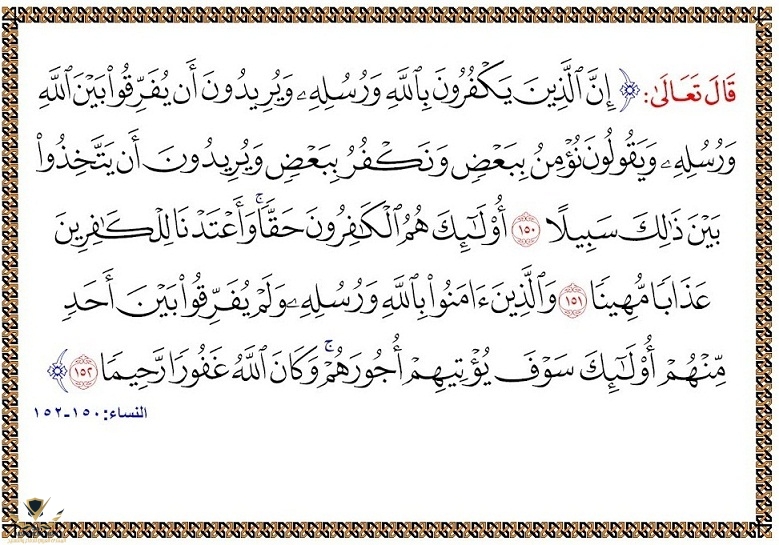 قَالَ تَعَالَىٰ: ﴿ إِنَّ ٱلَّذِينَ يَكْفُرُونَ بِٱللَّهِ وَرُسُلِهِۦ وَيُرِيدُونَ أَن يُفَرِّقُوا۟ بَيْنَ ٱللَّهِ
وَرُسُلِهِۦ وَيَقُولُونَ نُؤْمِنُ بِبَعْضٍ وَنَكْفُرُ بِبَعْضٍ وَيُرِيدُونَ أَن يَتَّخِذُوا۟
بَيْنَ ذَٰلِكَ سَبِيلًا ١٥٠ أُو۟لَٰٓئِكَ هُمُ ٱلْكَٰفِرُونَ حَقًّا ۚ وَأَعْتَدْنَا لِلْكَٰفِرِينَ
عَذَابًا مُّهِينًا ١٥١ وَٱلَّذِينَ ءَامَنُوا۟ بِٱللَّهِ وَرُسُلِهِۦ وَلَمْ يُفَرِّقُوا۟ بَيْنَ أَحَدٍ
مِّنْهُمْ أُو۟لَٰٓئِكَ سَوْفَ يُؤْتِيهِمْ أُجُورَهُمْ ۚ وَكَانَ ٱللَّهُ غَفُورًا رَّحِيمًا ١٥٢ ﴾
النساء: ١٥٠-١٥٢